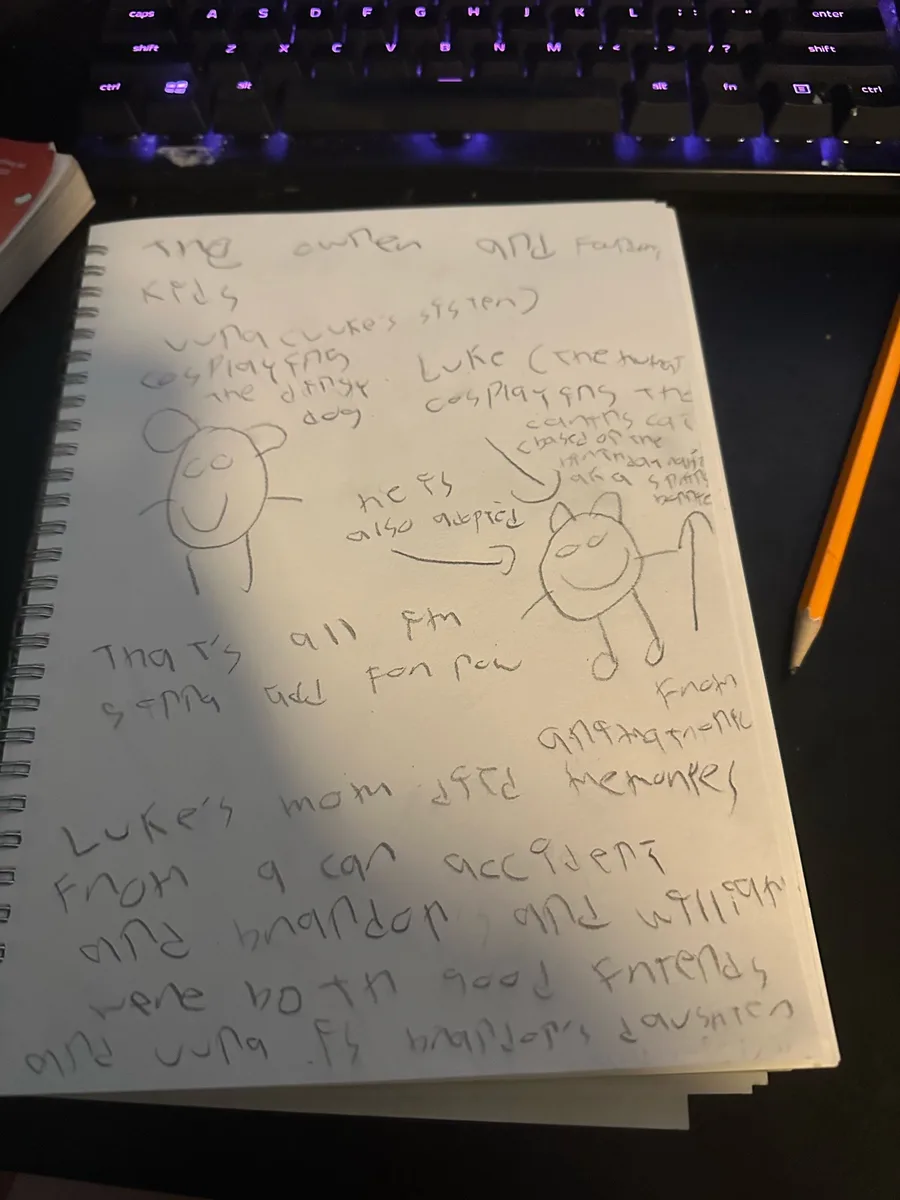 caps A S D F G H J K L : ; " ' enter
shift Z X C V B N M , < . > / ? shift
ctrl alt alt fn ctrl
The owner and
Kids
Luna (Luke's sister)
cosplaying
the dingy
dog
Luke (The
cosplaying the
cat
(based of the
aka a
he is
also adopted
That's all I'm
gonna add for now
From
animatronic
memories
Luke's mom died
From a car accident
and brandon, and william
were both good friends
and Luna is brandon's daughter